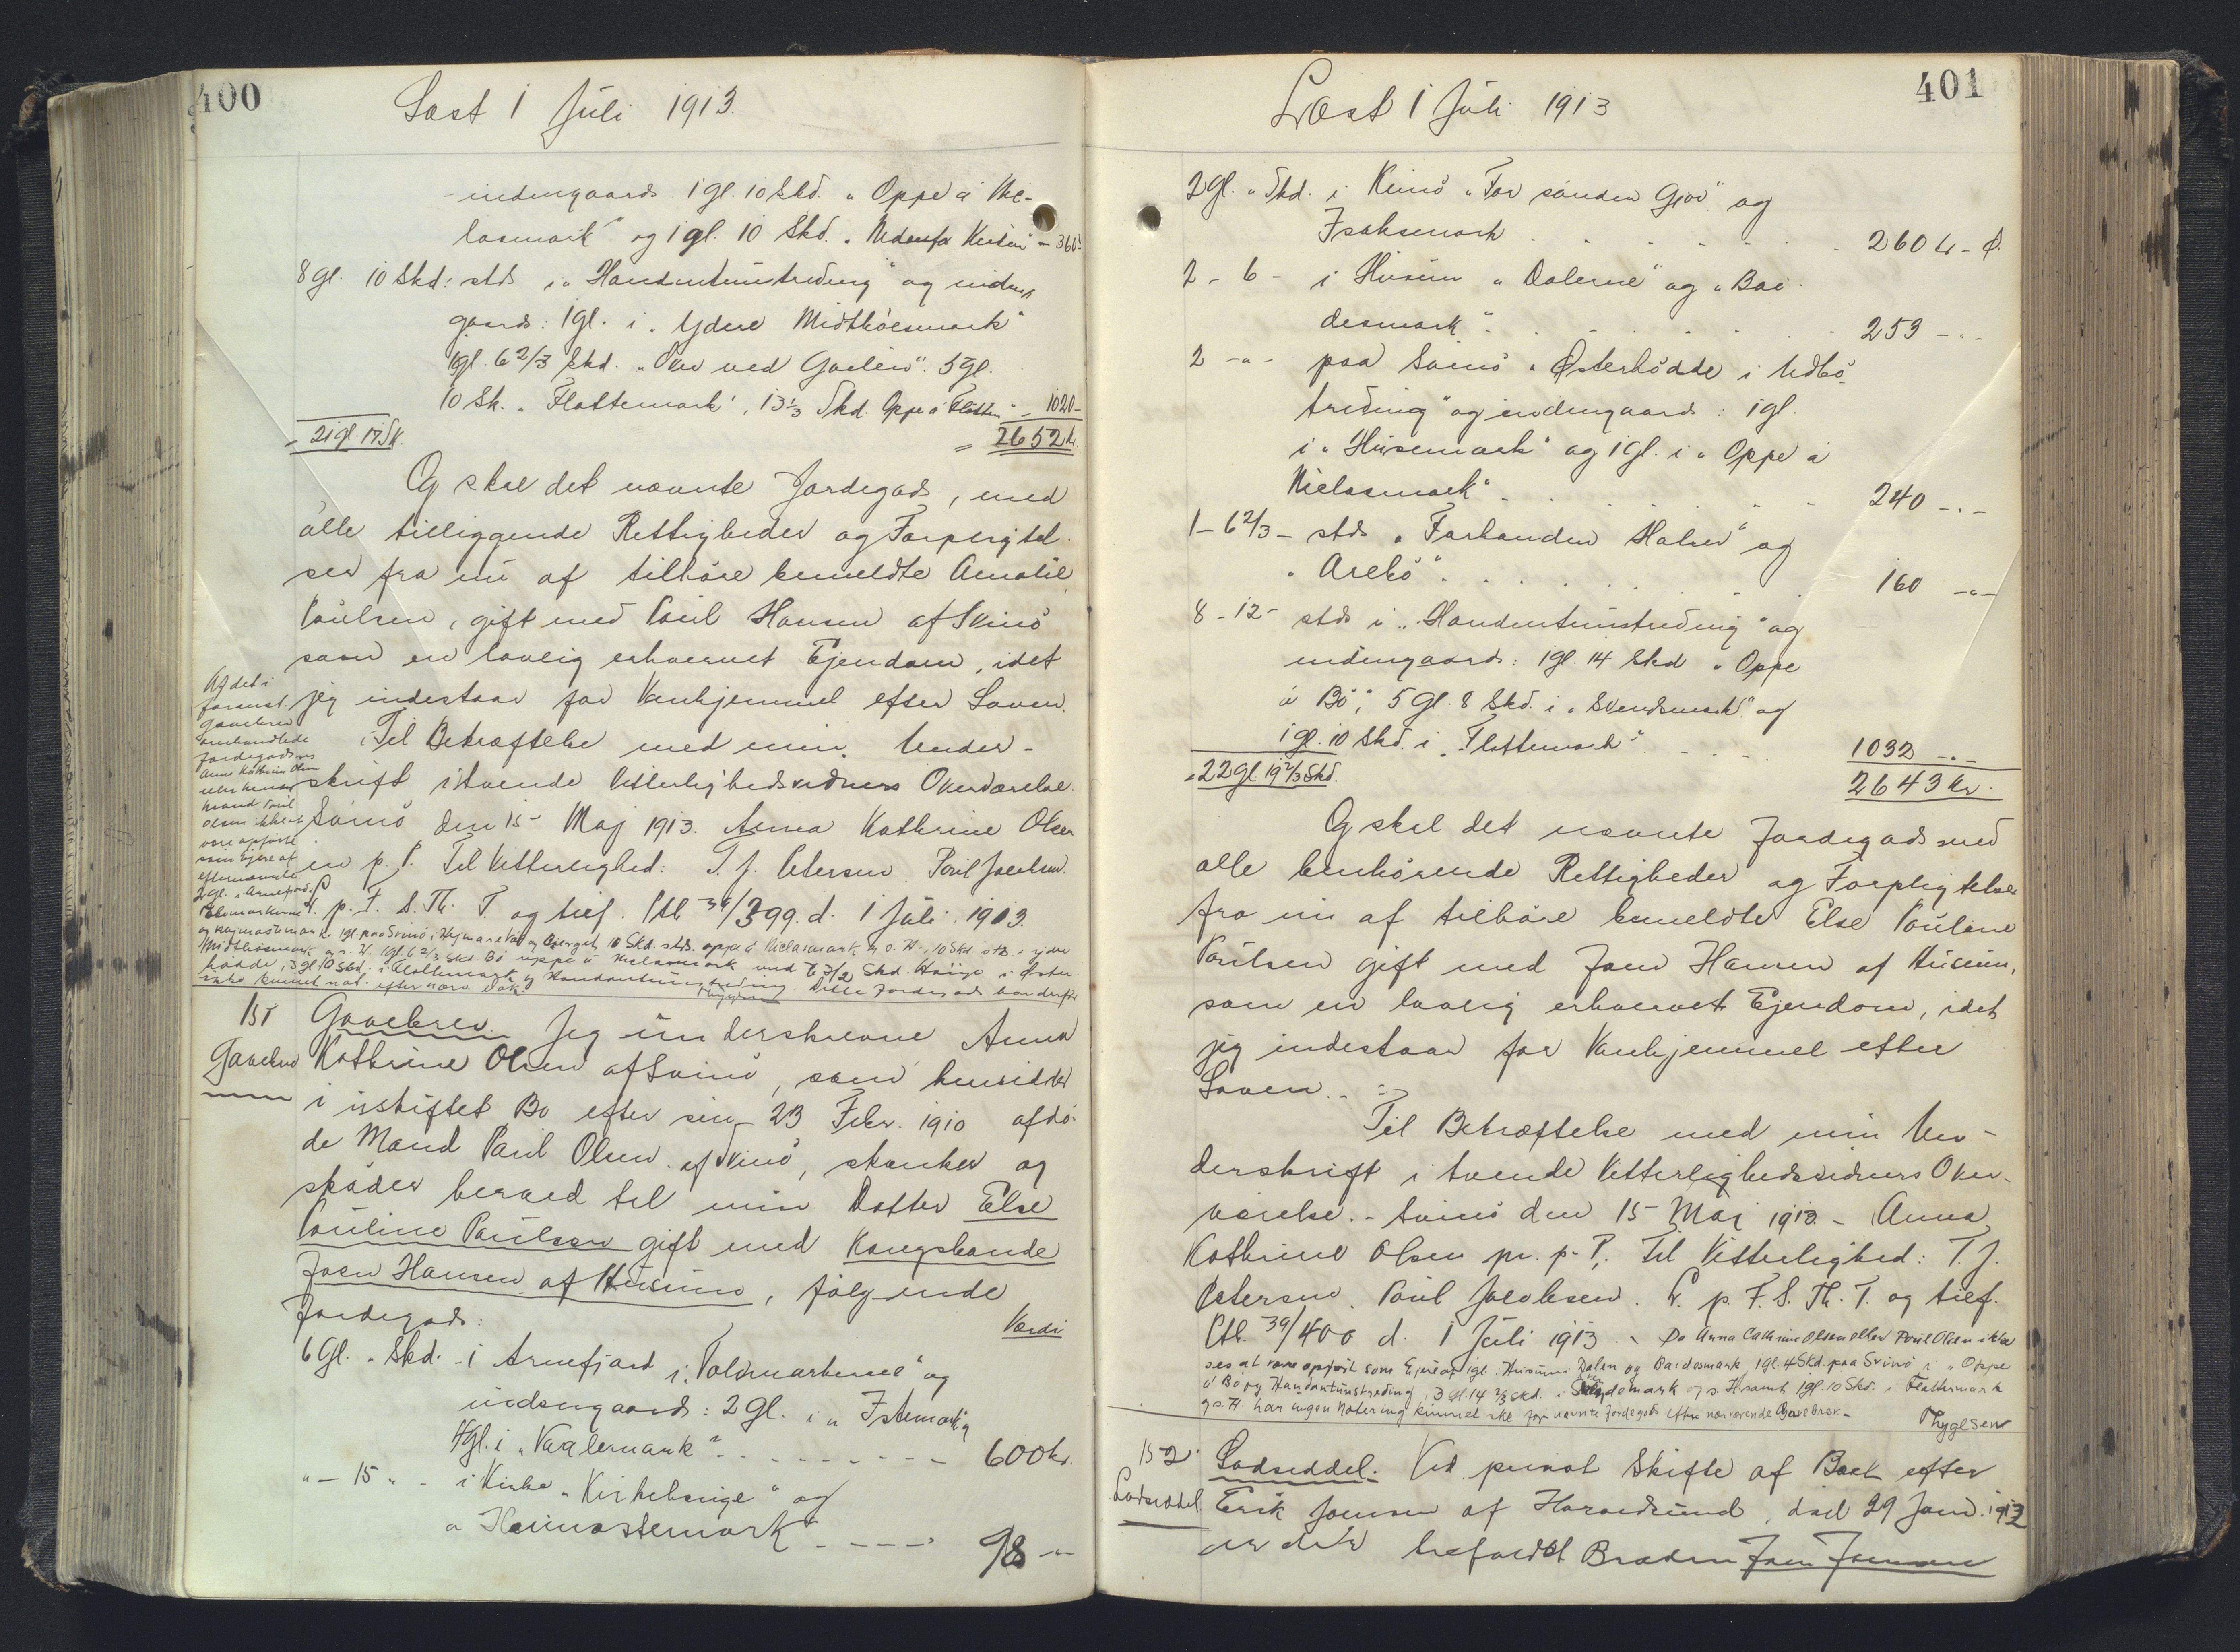 400
Læst 1 Juli 1913.
indengaards 1 gl. 10 Skd. "Oppe á Nie-
lasmark" og 1 gl. 10 Skd. "Nedenfor - 360 -
8 gl. 10 Skd: stds i "Handentunstreding" og inden
gaards: 1 gl. i "Ydere Midthöesmark"
1 gl. 6 2/3 Skd. "Over ved Gaelen". 5 gl.
10 Sk. "Flottemark", 13 1/3 Skd. Oppe á Flotten" - 1020 -
= 21 gl. 17 Sk. = 2652 kr.
Og skal det nævnte Jordegods, med
alle tilliggende Rettigheder og Forpligtel-
ser fra nu af tilhöre bemeldte Amalie
Poulsen, gift med Poul Hansen af Svinö
som en lovlig erhvervet Ejendom, idet
jeg indestaar for Vanhjemmel efter Loven.
Til Betræftelse med min Under-
skrift i tvende Vitterlighedsvidners Overværelse
Svinö den 15 Maj 1913. Anna Kathrine Olsen
m p. P. Til Vitterlighed: T. J. Petersen Poul Jacobsen.
L. p. F. S. Th. T. og tief. Ctb 39/399. d. 1 Juli 1913.
Af det i
foranst.
Gavebrev
omhandlede
Jordegods ses
Anna Kathrine Olsen
eller hendes
Mand Poul
Olsen ikke at
være opförte
som Ejere af
efternævnte
2 gl. i Arnefjord
Tolvmarkerne
og 1 gl. paa Svinö i og 10 Skd. stds. oppe á Nielasmark og s. H., 10 Skd. stds. i ydre
Midthösmark og s. H. 1 gl. 6 2/3 Skd Bö oppe á Nielasmark med 6 2/3 Skd. i Öster
hödde, 3 gl. 10 Skd. i Flottemark og Handentunstreding. Dette Jordegods har derfor
ikke kunnet not. efter nærv. Dok. Thygesen
151
Gavebrev
Gavebrev. Jeg underskrevne Anna
Kathrine Olsen af Svinö, som hensidder
i uskiftet Bo efter sin 23 Febr. 1910 afdö-
de Mand Poul Olsen af Svinö, skænker og
sköder herved til min Datter Else
Pouline Poulsen gift med Kongsbonde
Joen Hansen af Husum, fölgende
Jordegods: Værdi
6 Gl. " Skd. - i Arnefjord i "Tolvmarkerne" og
indengaards: 2 gl. i "Istemark" og
4 gl. i "Vaalemark" - - - - 600 kr.
" - 15 " - i Kirke "Kirkebrige" og
" Heimastemark" - - - - 98 -"-
401
Læst 1 Juli 1913
2 gl. " Skd. i Kunö "For sönden Gjov" og
Isaksmark . . . . . . 260 kr - Ø.
2 - 6 - i Husum "Dalerne" og "Bar-
desmark" . . . . . . 253 -"-
2 -"- paa Svinö "Østerhödde i Udbö-
treding" og indengaards: 1 gl.
i "Husemark" og 1 gl. i "Oppe á
Nielasmark" . . . . . 240 -"-
1 - 6 2/3 - stds "Forlanden Halsen" og
"Arebö" . . . . . . 160 -"-
8 - 12 - stds i "Handentunstreding" og
indengaards: 1 gl. 14 Skd "Oppe
á Bö", 5 gl. 8 Skd. i "Svendsmark" og
1 gl. 10 Skd. i "Flottemark" . . . 1032 -"-
= 22 gl 19 2/3 Skd. 2643 kr.
Og skal det nævnte Jordegods med
alle henhörende Rettigheder og Forpligtelser
fra nu af tilhöre bemeldte Else Pouline
Poulsen gift med Joen Hansen af Husum,
som en lovlig erhvervet Ejendom, idet
jeg indestaar for Vanhjemmel efter
Loven. -
Til Betræftelse med min Un-
derskrift i tvende Vitterlighedsvidners Over-
værelse. - Svinö den 15 Maj 1913. - Anna
Kathrine Olsen m. p. P. Til Vitterlighed: T. J.
Petersen. Poul Jacobsen. L. p. F. S. Th. T. og tief.
Ctb. 39/400 d. 1 Juli 1913. - Da Anna Cathrine Olsen eller Poul Olsen ikke
ses at være opfört som Ejere af 1 gl. i Husum i Dalen og Bardesmark 1 gl. 4 Skd. paa Svinö i "Oppe
á Bö" og Handantunstreding, 3 gl. 14 2/3 Skd. i Svendsmark og s. H. samt 1 gl. 10 Skd. i Flattemark
og s. H. har ingen Notering kunnet ske for nævnte Jordegods efter nærværende Gavebrev. - Thygesen
152
Lodseddel
Lodseddel. Ved privat Skifte af Boet efter
Erik Joensen af Haraldsund, död 29 Janr. 1912
er der tilfaldet Broderen Joen Joensen